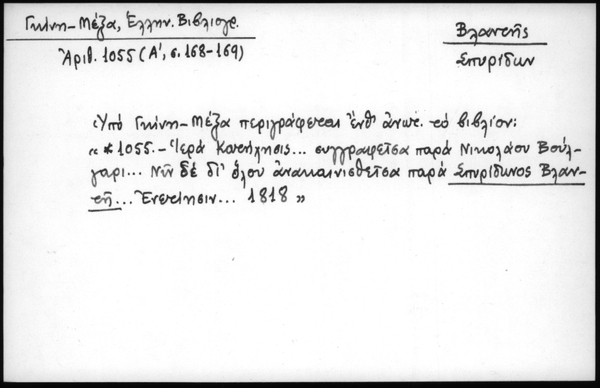 Γκίνη-Μέξα, Ἑλλην. Βιβλιογρ.
Ἀριθ. 1055 (Α', σ. 168-169)
Βλαντῆς
Σπυρίδων
Ὑπό Γκίνη-Μέξα περιγράφεται ἔνθ' ἀνωτ. τό βιβλίον:
« *1055.- Ἱερά Κατήχησις... συγγραφεῖσα παρά Νικολάου Βούλ-
γαρι... Νῦν δέ δι' ὅλου ἀνακαινισθεῖσα παρά Σπυρίδωνος Βλαν-
τῆ... Ἐνετίησιν... 1818 »